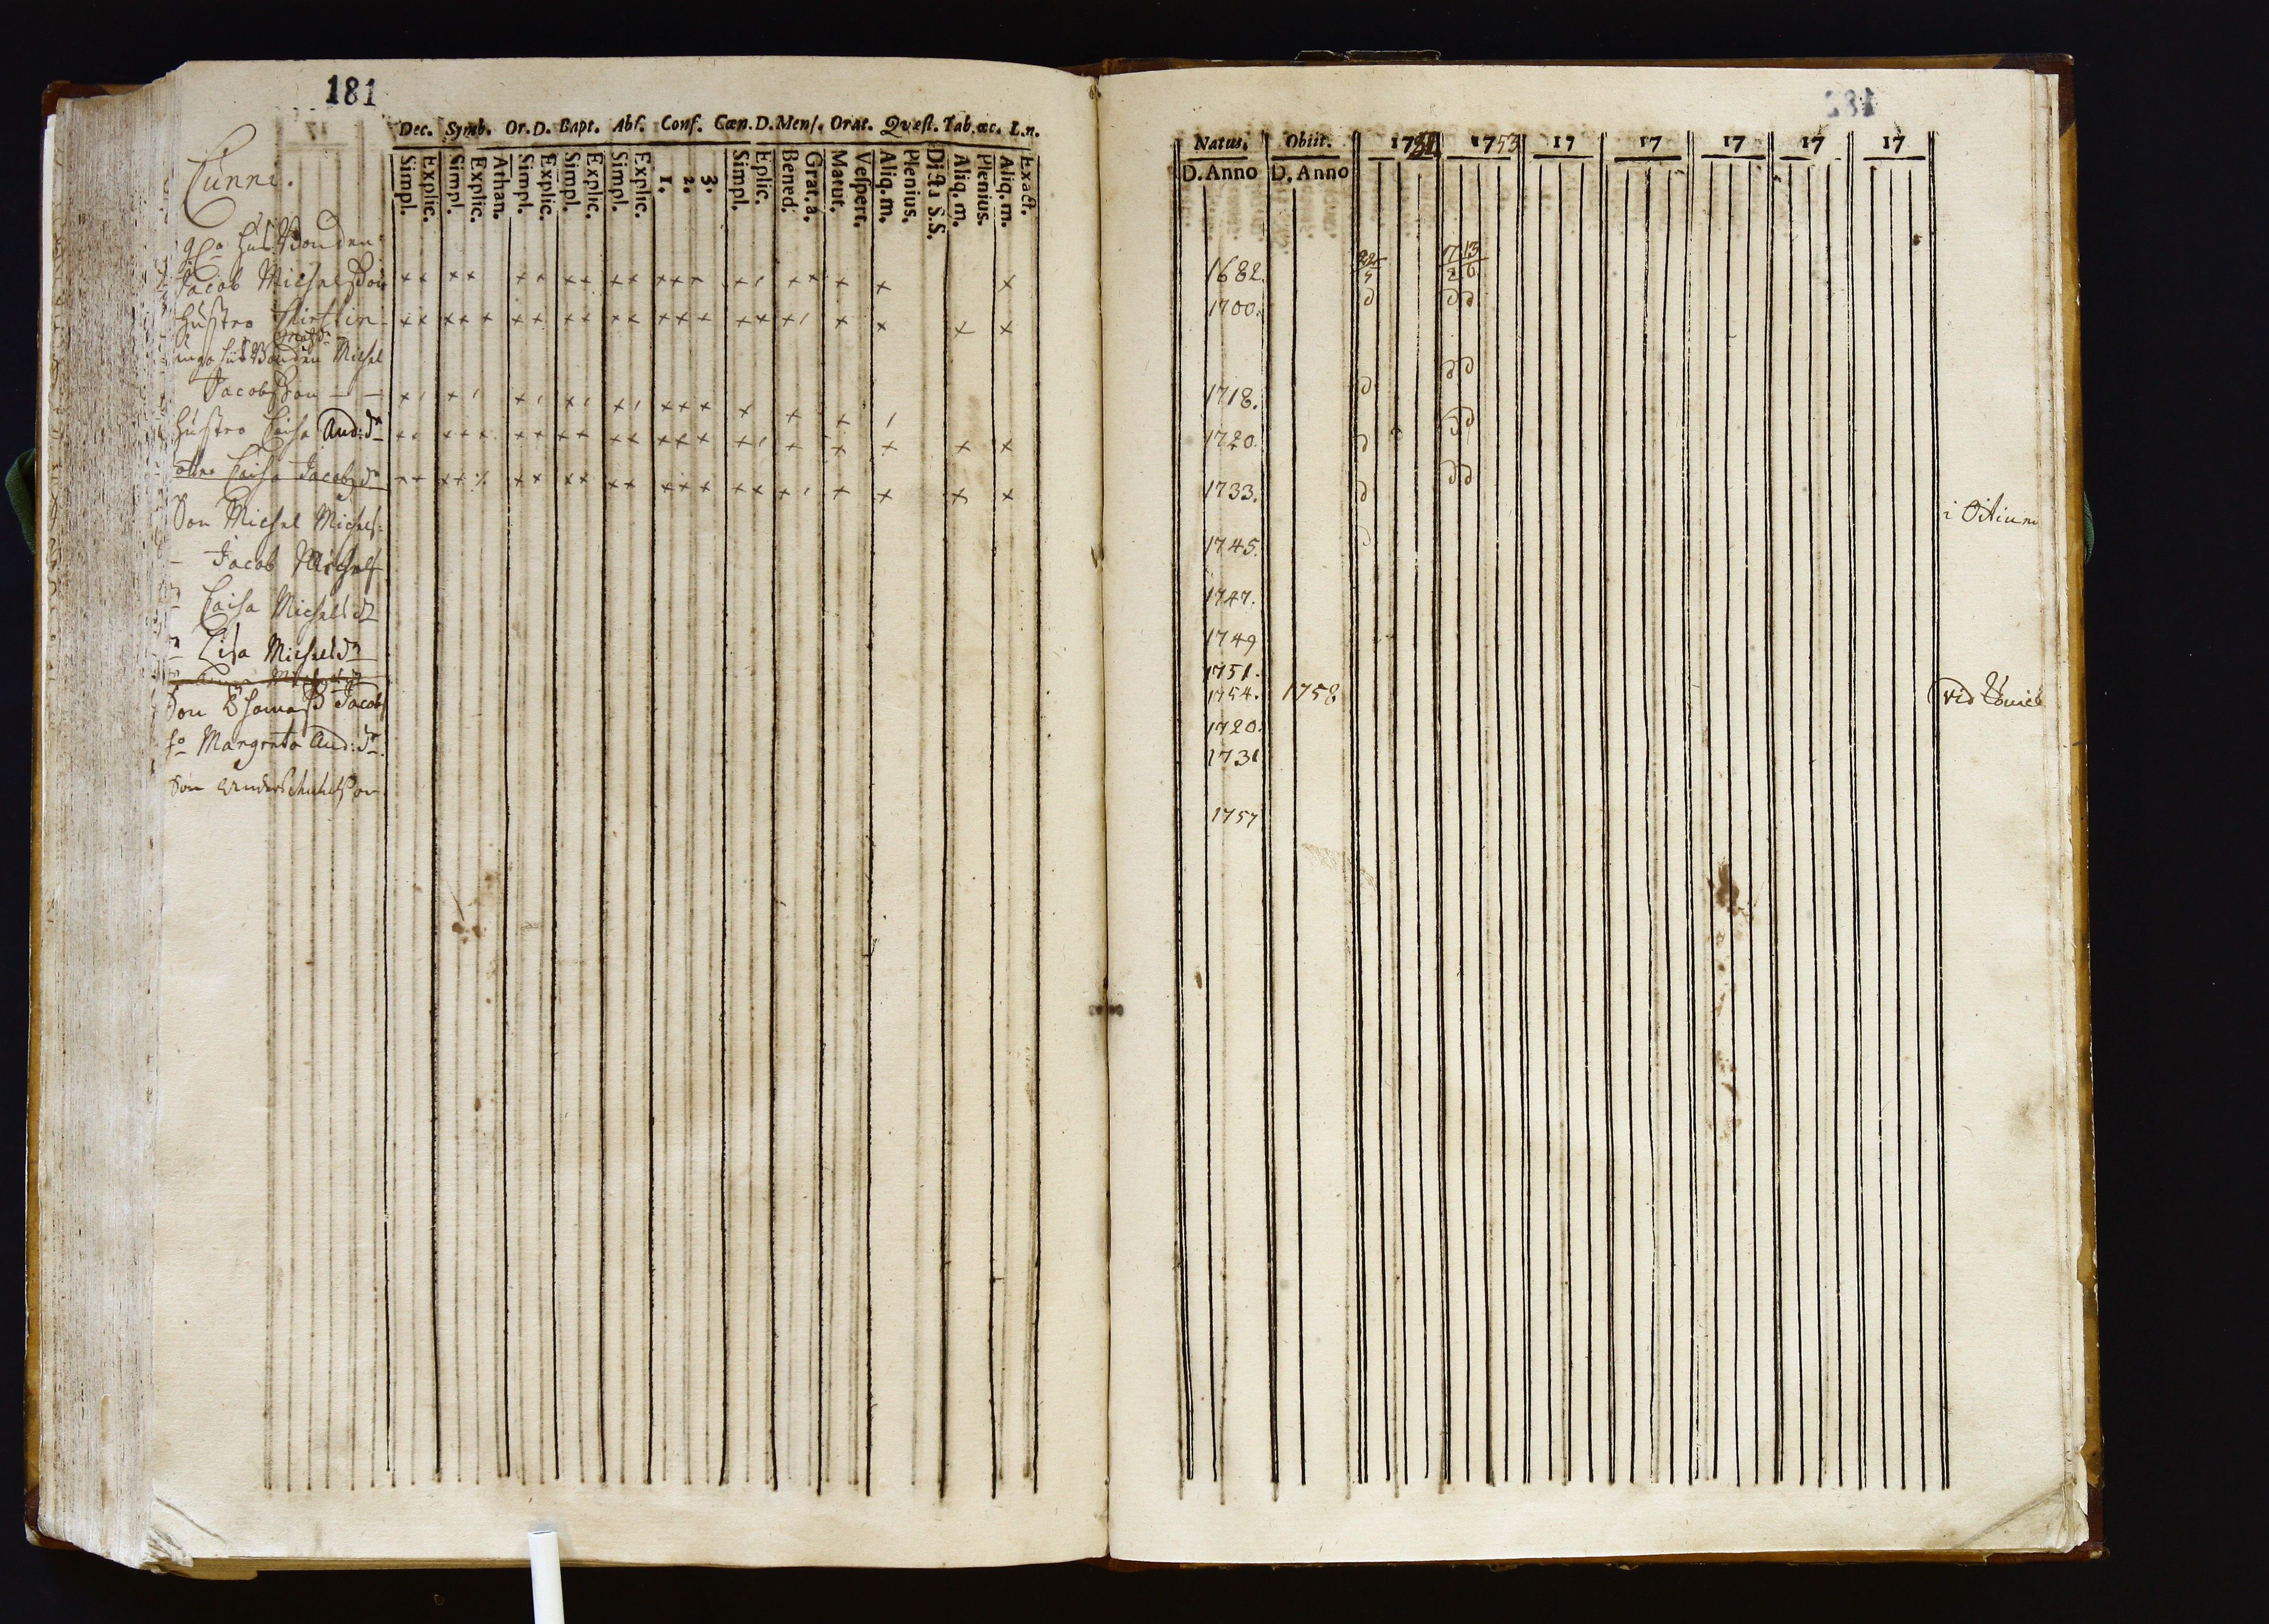 181
Dec. Symb. Or.D. Bapt. Abs. Conf. Cœn.D. Mens. Orat. Qvæst. Tab.œc. L.n.
Simpl. Explic. Simpl. Explic. Athan. Simpl. Explic. Simpl. Explic. Simpl. Explic. 1. 2. 3. Simpl. Eplic. Bened. Grat.a. Matut. Vespert. Aliq.m. Plenius. Dicta S.S. Aliq.m. Plenius. Aliq.m. Exact.
Cunni.
Hus Bonden
Jacob Michelsson
Hustro Kirstin
Matsdr
unga hus Bonden Michel
Jacobsson
Hustro Caisa And:dr
Caisa Jacobsdr
Son Michel Michels:
Jacob Michels
Caisa Michelsdr
Lisa Michelsdr
Son Thomas Jacobs
Margreta And:dr
Son Anders
182
Natus. Obiit. 1751 1753 17 17 17 17 17
D. Anno D. Anno
22/5 17/2 13/6
1682.
1700.
1718.
1720.
1733.
i Oitium
1745.
1747.
1749
1751.
1754. 1758
vid
1720.
1731
1757